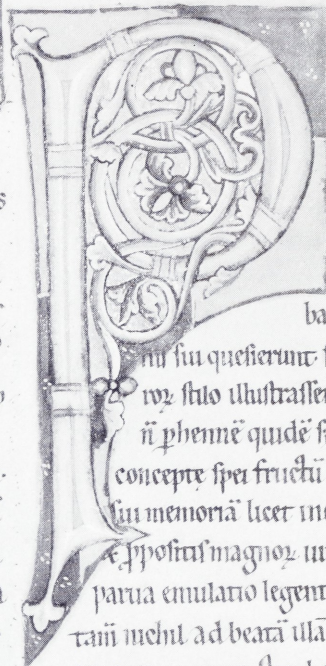 P
ba
nis sui quesierunt
roꝝ stilo illustrasse
n̄ phennē quidē
concepte spei fructū
sui memoriā licet in
& ꝓpositis magnoꝝ ui
parua emulatio legent
tam̄ nichil ad beatā illā